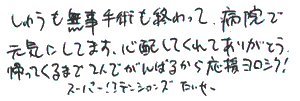 しゅうも無事手術も終わって、病院で
元気にしてます、心配してくれてありがとう、
帰ってくるまで2人でがんばるから応援ヨロシク!
スーパー!?テンションズ たいせー